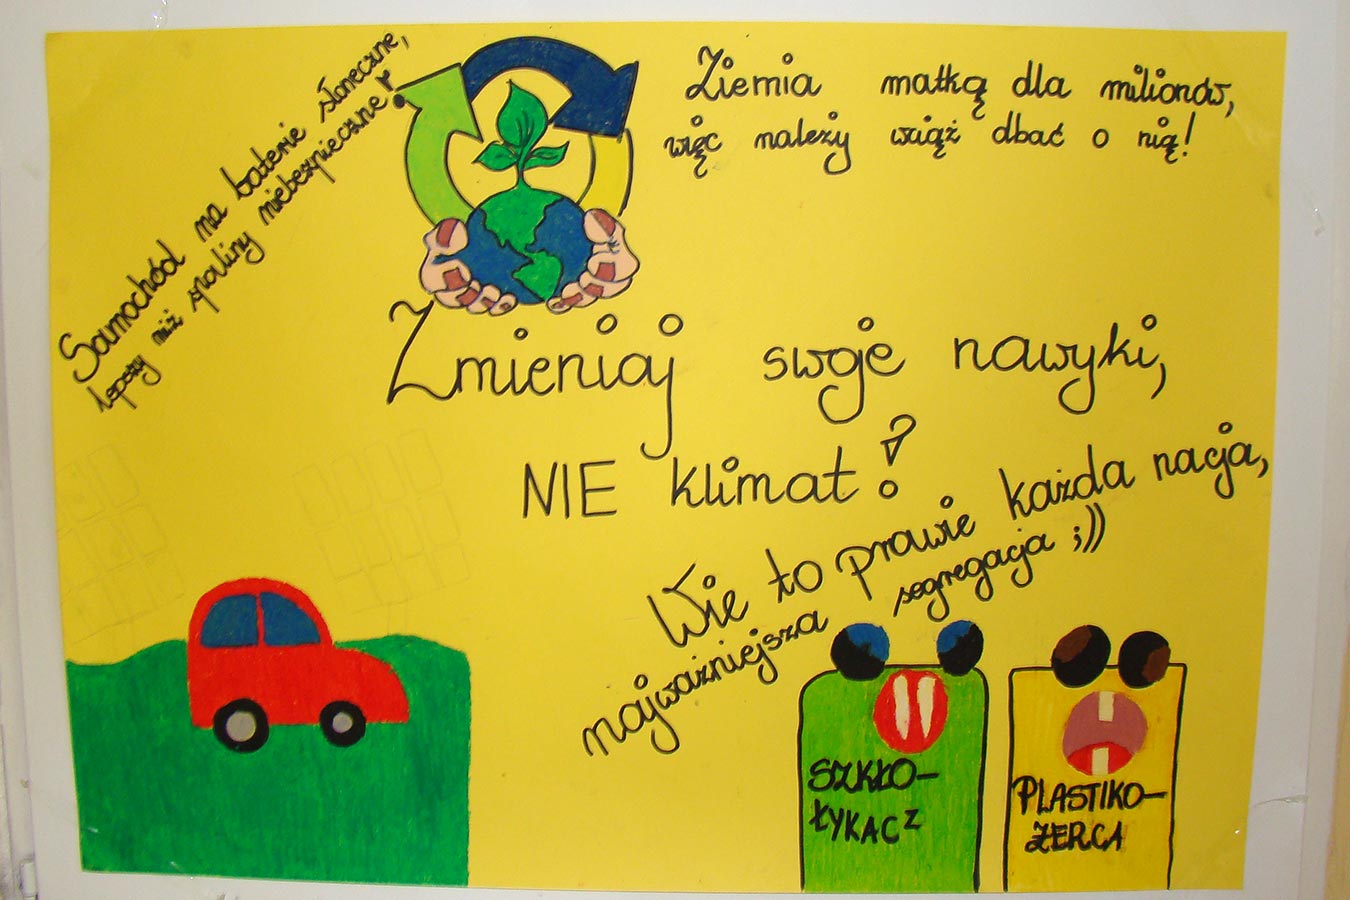 Samochód na baterie słoneczne,
lepszy niż spaliny niebezpieczne!
Ziemia matką dla milionów,
więc należy wciąż dbać o nią!
Zmieniaj swoje nawyki,
NIE klimat!
Wie to prawie każda nacja,
najważniejsza segregacja ;))
SZKŁO-
ŁYKACZ
PLASTIKO-
ŻERCA